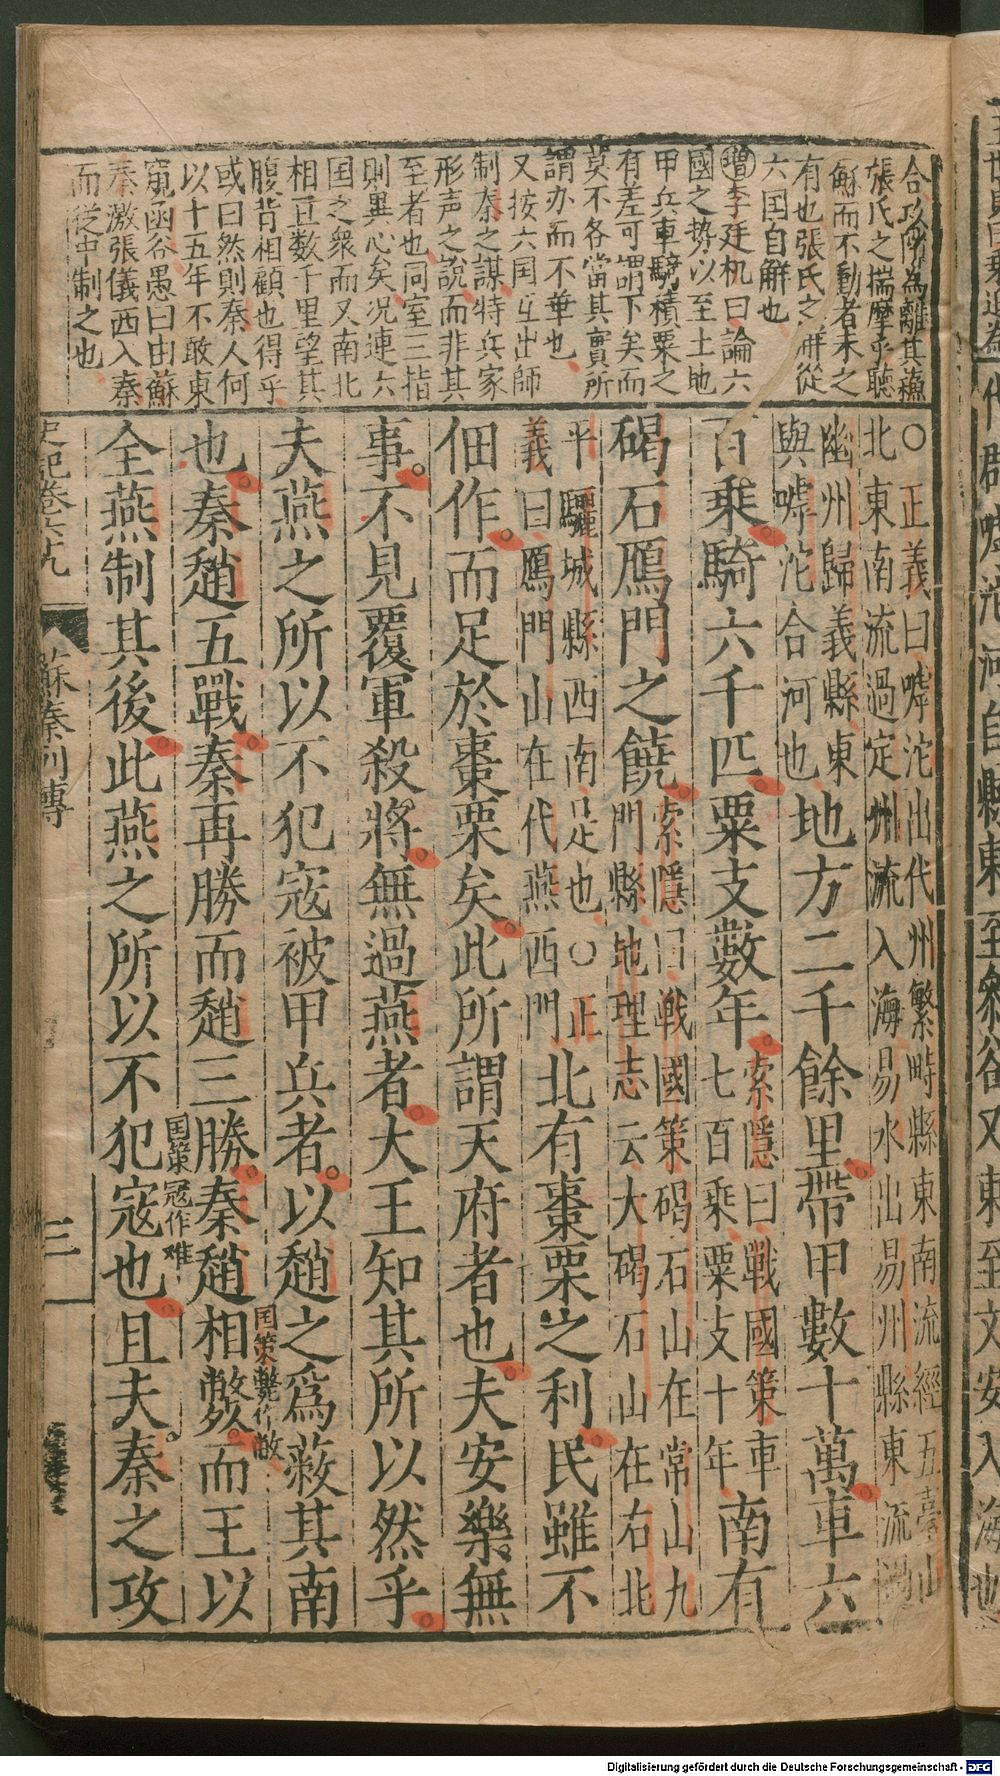 合以陽為離其蘓
張氏之揣摩乎聽
蘇而不動者未之
有也張氏之耕從
六国自解也
増李廷机曰論六
國之势以至土地
甲兵車騎積粟之
有差可謂下矣而
莫不各當其實所
謂办而不華也
又按六国互出師
制秦之謀特兵家
形声之説而非其
至者也同室三指
則異心矣况連六
国之衆而又南北
相亘数千里望其
腹背相顧也得乎
或曰然則秦人何
以十五年不敢東
窺函谷愚曰由蘇
秦激張儀西入秦
而從中制之也
○正義曰嘑沱出代州繁畤縣東南流經五臺山
北東南流過定州流入海易水出易州縣東流過
幽州歸義縣東
與嘑沱合河也
地方二千餘里帶甲數十萬車六
百乘騎六千匹粟支數年
索隱曰戰國策車
七百乘粟支十年
南有
碣石鴈門之饒
索隱曰戦國策碣石山在常山九
門縣地理志云大碣石山在右北
平驪城縣西南是也○正
義曰鴈門山在代燕西門
北有棗栗之利民雖不
佃作而足於棗栗矣此所謂天府者也夫安樂無
事不見覆軍殺將無過燕者大王知其所以然乎
夫燕之所以不犯寇被甲兵者以趙之爲蔽其南
国策斃作敝
也秦趙五戰秦再勝而趙三勝秦趙相斃而王以
国策寇作难
全燕制其後此燕之所以不犯寇也且夫秦之攻
史記卷六九
蘇秦列傳
三
Digitalisierung gefördert durch die Deutsche Forschungsgemeinschaft - DFG